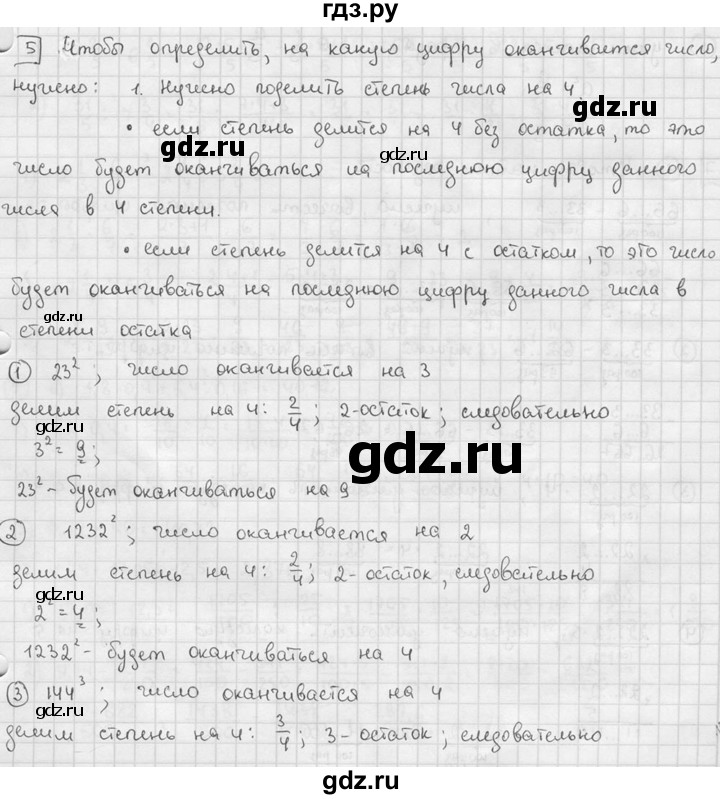 гдз.ру
5 Чтобы определить, на какую цифру оканчивается число,
нужно: 1. Нужно поделить степень числа на 4.
gdz.ru
• если степень делится на 4 без остатка, то это
gdz.ru
число будет оканчиваться на последнюю цифру данного
gdz.ru
числа в 4 степени.
• если степень делится на 4 с остатком, то это число
будет оканчиваться на последнюю цифру данного числа в
gdz.ru
gdz.ru
степени остатка
① 23²; число оканчивается на 3
делим степень на 4: 2/4; 2-остаток; следовательно
3² = 9;
gdz.ru
gdz.ru
23² - будет оканчиваться на 9
② 1232²; число оканчивается на 2
делим степень на 4: 2/4; 2-остаток, следовательно
gdz.ru
gdz.ru
2² = 4;
1232² - будет оканчиваться на 4
③ 144³; число оканчивается на 4
gdz.ru
gdz.ru
делим степень на 4: 3/4; 3-остаток; следовательно
gdz.ru